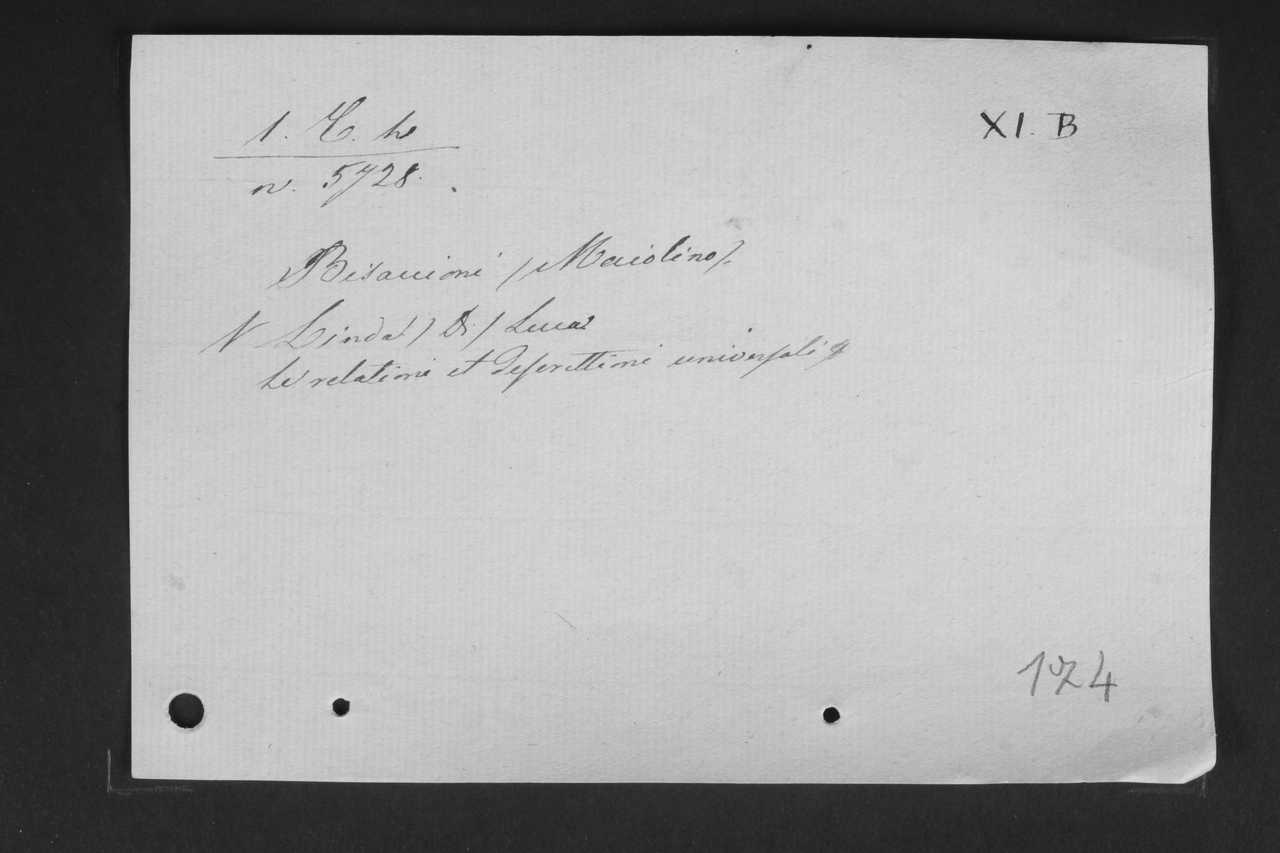 1. E. h
XI. B
n. 5728.
Bisaccioni (Maiolino).
V Linda (di) Luca
Le relationi et descrittioni universali &
174